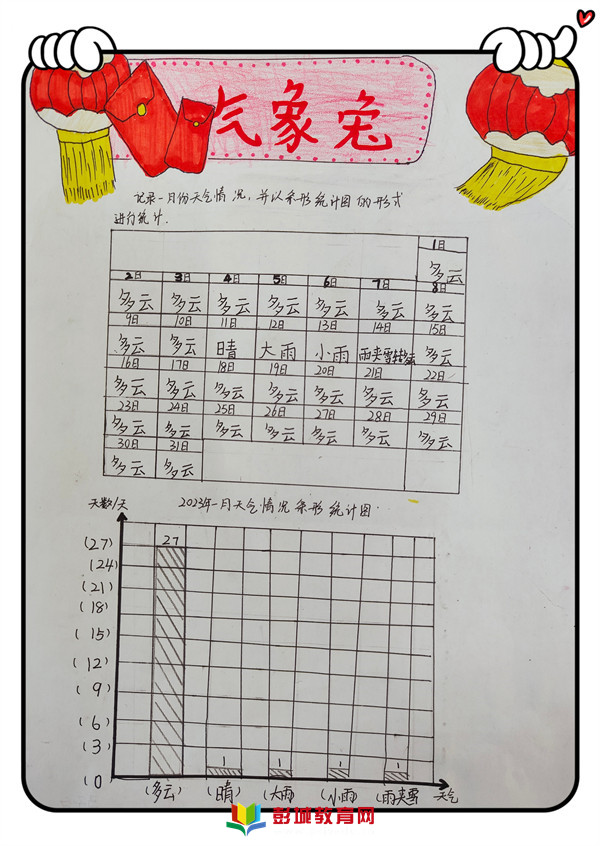 气象兔
记录一月份天气情况，并以条形统计图的形式
进行统计．
1日
多云
2日 3日 4日 5日 6日 7日 8日
多云 多云 多云 多云 多云 多云 多云
9日 10日 11日 12日 13日 14日 15日
多云 多云 晴 大雨 小雨 雨夹雪转多云 多云
16日 17日 18日 19日 20日 21日 22日
多云 多云 多云 多云 多云 多云 多云
23日 24日 25日 26日 27日 28日 29日
多云 多云 多云 多云 多云 多云 多云
30日 31日
多云 多云
天数/天 2023年一月天气情况条形统计图
(27) 27
(24)
(21)
(18)
(15)
(12)
(9)
(6)
(3) 1 1 1 1
(0 (多云) (晴) (大雨) (小雨) (雨夹雪 天气
彭城教育网